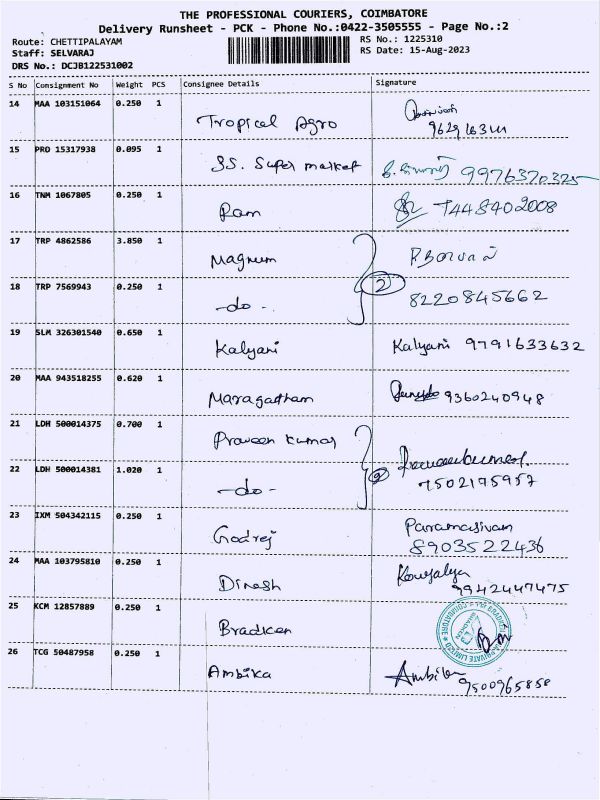 THE PROFESSIONAL COURIERS, COIMBATORE
Delivery Runsheet - PCK - Phone No.:0422-3505555 - Page No.:2
Route: CHETTIPALAYAM
RS No.: 1225310
Staff: SELVARAJ
RS Date: 15-Aug-2023
DRS No.: DCJB122531002
S No Consignment No Weight PCS Consignee Details Signature
14 MAA 103151064 0.250 1
Tropical Agro
15 PRO 15317938 0.095 1
SS. Super market 9976370325
16 TNM 1067805 0.250 1
Ram 7448402008
17 TRP 4862586 3.850 1
Magnum
2
18 TRP 7569943 0.250 1
-do- 8220845662
19 SLM 326301540 0.650 1
Kalyani Kalyani 9791633632
20 MAA 943518255 0.620 1
Maragatham 9360240948
21 LDH 500014375 0.700 1
Praveen Kumar
2
22 LDH 500014381 1.020 1
-do- 7502195957
23 IXM 504342115 0.250 1
Godrej Paramasivan
8903522436
24 MAA 103795810 0.250 1
Dinesh Kousalya
9942447475
25 KCM 12857889 0.250 1
Bradken
PRIVATE LIMITED
26 TCG 50487958 0.250 1
Ambika Ambika
9500965858